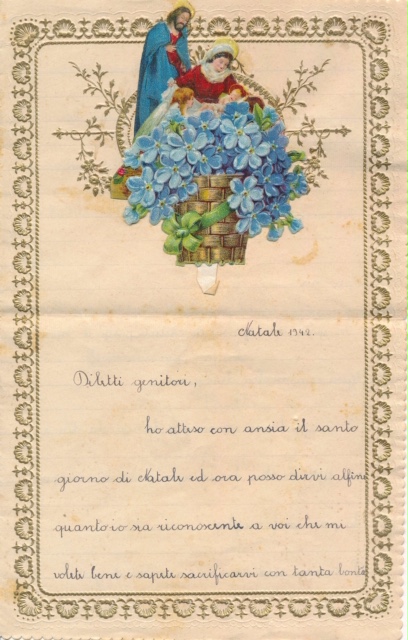 Natale 1942.
Diletti genitori,
ho atteso con ansia il santo
giorno di Natale ed ora posso dirvi alfine
quanto io sia riconoscente a voi che mi
volete bene e sapete sacrificarvi con tanta bontà